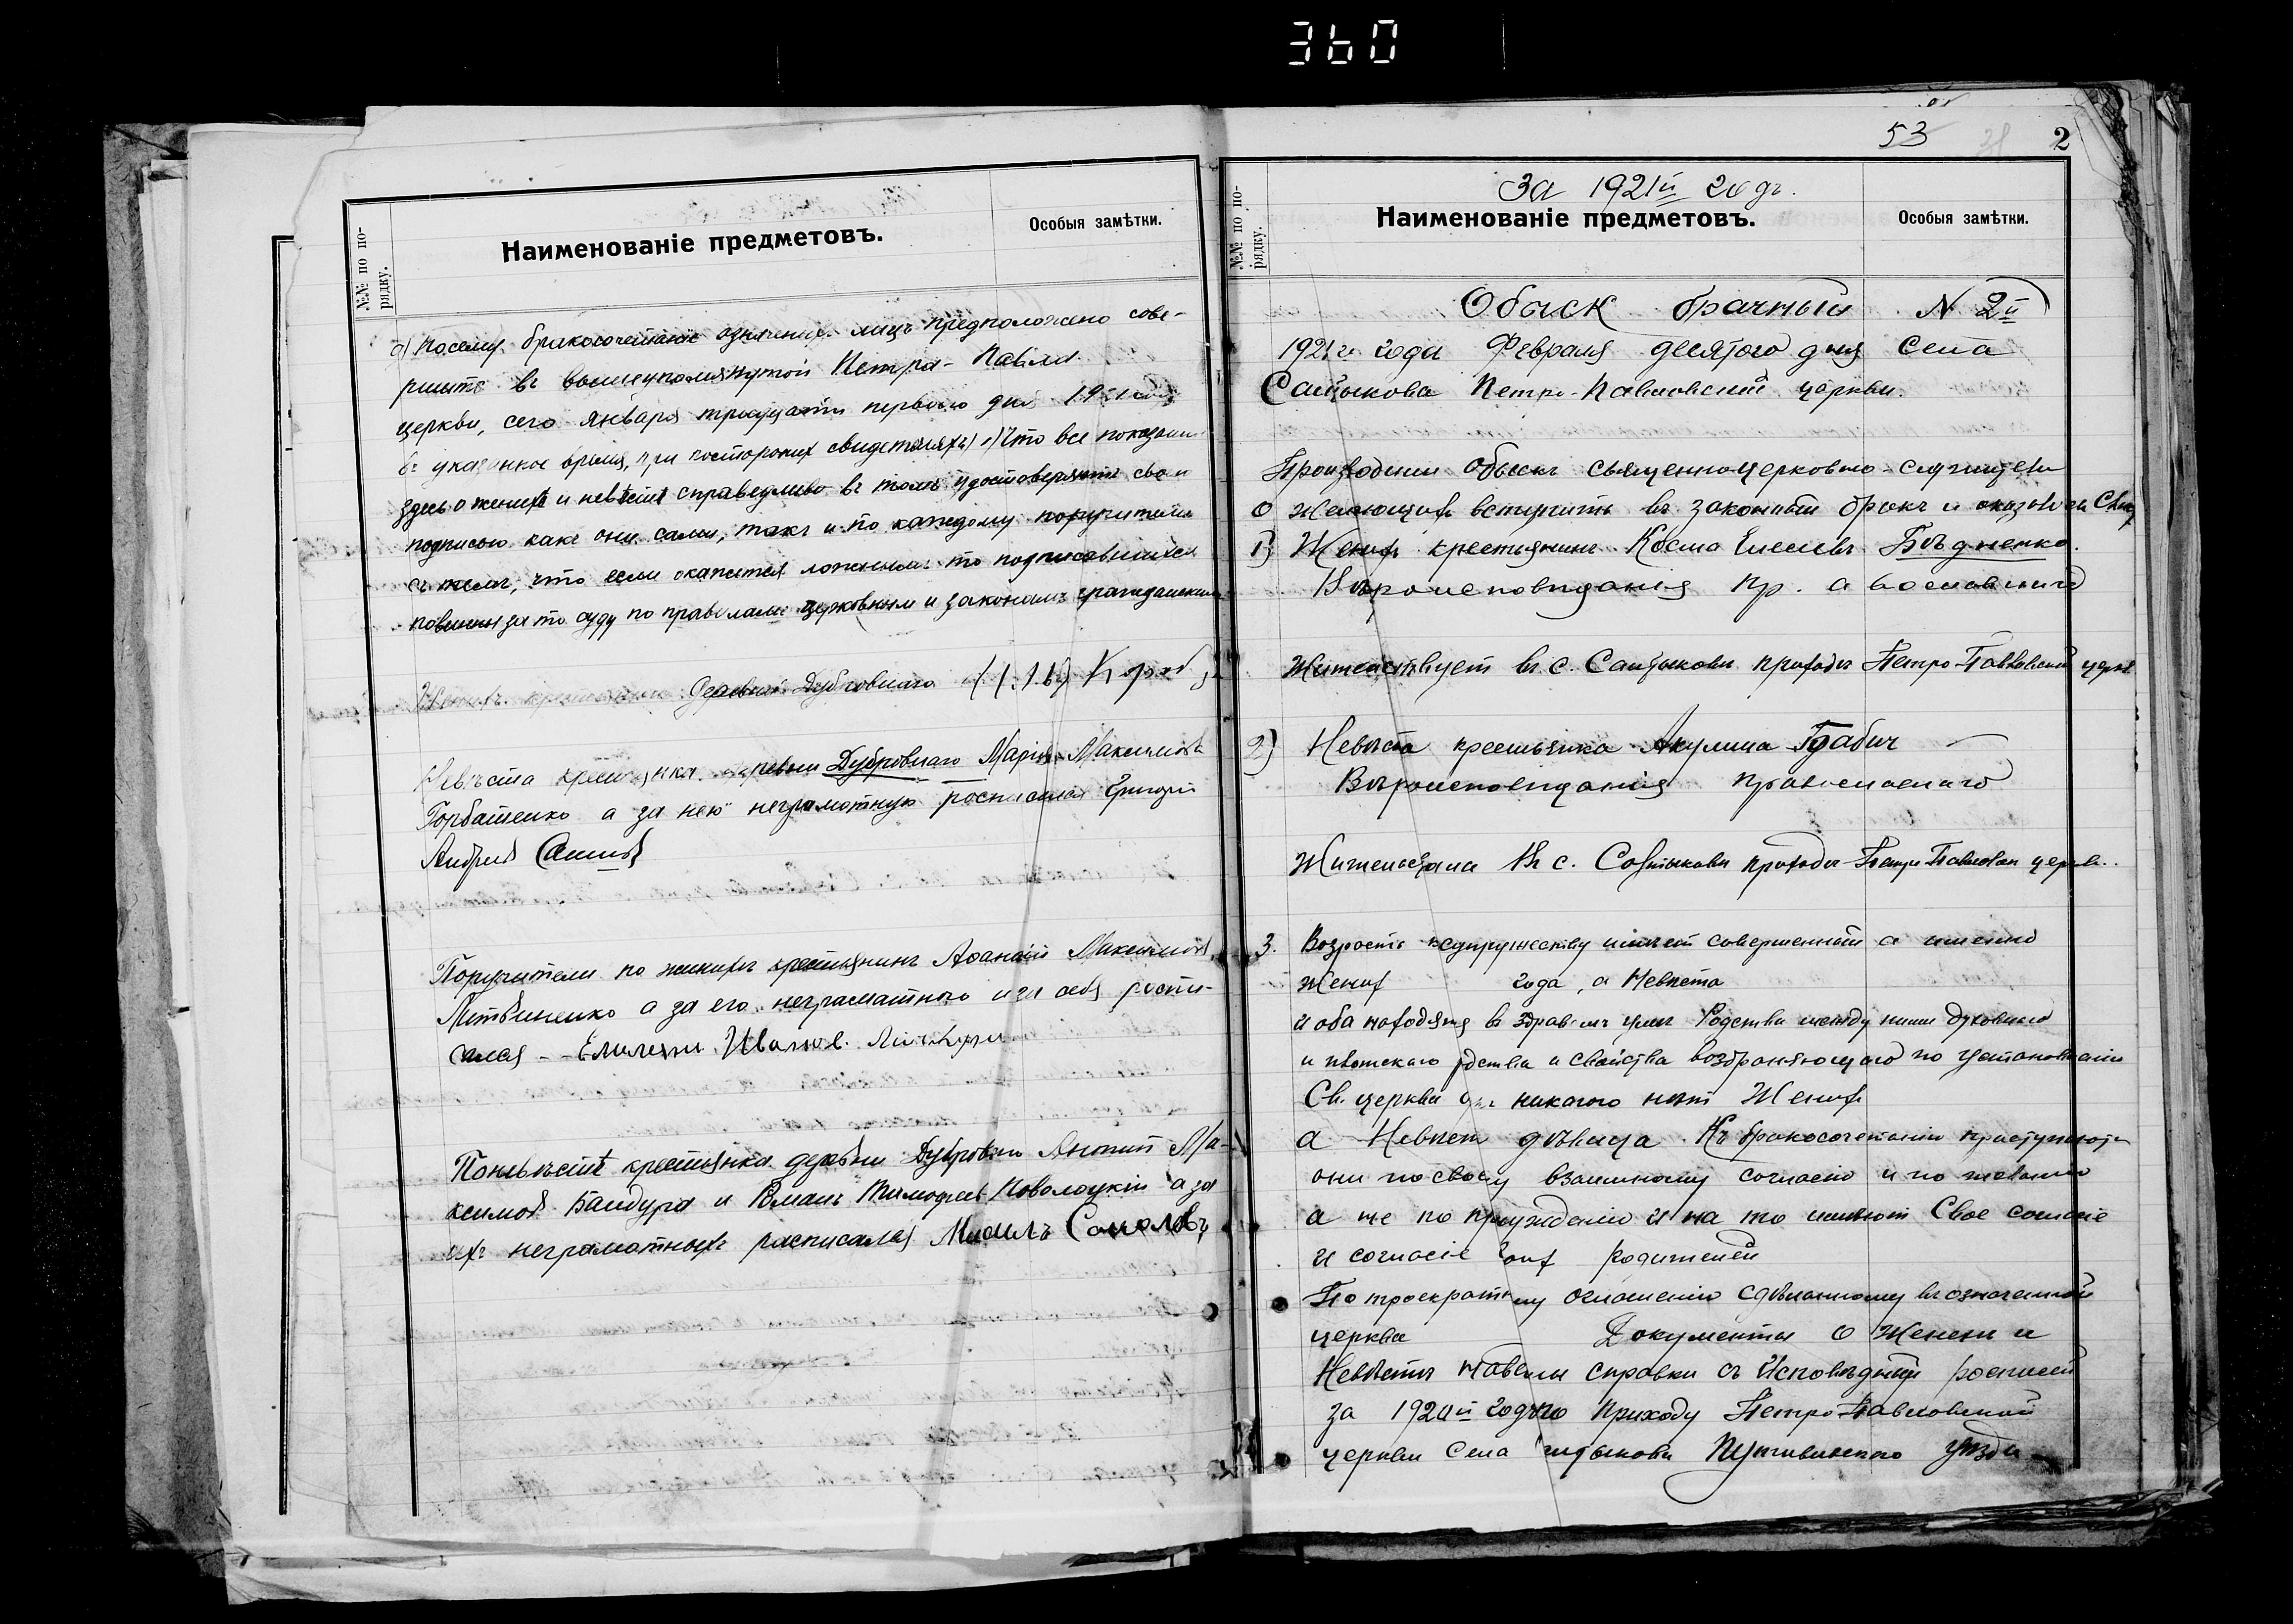 360
№№ по по-
рядку.
Наименованіе предметовъ.
Особыя замѣтки.
Посему бракосочетаніе означен. лицъ предположено сове-
ршить въ вышеупомянутой Петра-Павла
церкви, сего Января тридцать перваго дня
въ указанное время, при постороних свидетеляхъ) Что все показан.
здесь о женихѣ и невѣстѣ справедливо въ томъ удостоверяютъ своей
подписью какъ они сами, такъ и по каждому поручители
съ темъ, что если окажется ложнымъ то подписавшиеся
повинны за то суду по правиламъ церковным и законамъ гражданским
деревни Дубровнаго
Невѣста крестьянка деревни Дубровнаго Марія Максимова
Горбатенко а за нею неграмотную росписался Григорій
Андреев
Поручители по жениху крестьянинъ Афанасий Максимов
Литвиненко а за его неграматного и за себя роспи-
сался - Иванов.
По невѣстѣ крестьянка деревни Дубровн Антип Ма-
ксимов Бандура и Роман Тимофеев Поволоцкій а за
ихъ неграмотныхъ расписался
53
2
№№ по по-
рядку.
За 1921й годъ.
Наименованіе предметовъ.
Особыя замѣтки.
Обыск брачный N 2й
1921го года Февраля десятого дня Села
Салтыкова Петро-Павловской церкви.
Производили Обыскъ священноцерковно-служители
о желающих вступить въ законный бракъ и оказалось
1) Женихъ крестьянинъ Косма Елесеевъ Бѣдненко.
Вѣроисповѣданія пр. а вославнаго
Жительствует въ с. Салтыкови приходи Петро-Павловской церк
2) Невѣста крестьянка Акулина
Вѣроисповѣданія православнаго
Жительствуетъ въ с. Салтыкови приходи Петро Павловск церкв.
3. Возростъ къ супружеству имѣют совершенный а именно
жених года, а Невѣста
и оба находятся в здравомъ умѣ Родства между ними духовнаго
и плотскаго родства и свойства возбраняющаго по установленію
Св. церкви никакого нѣт Жених
а Невѣст дѣвица Къ бракосочетанію приступаютъ
они по своему взаимному согласію и по желанію
а не по принужденію и на то имѣют Свое согласіе
и согласіе родителей
По троекратному оглашенію сдѣланному въ означенной
церкви Документы о Женихи и
Невѣсты навели справки съ Исповѣдной росписей
за 1920й годъ по приходу Петро-Павловской
церкви Села Путивльского уѣзда